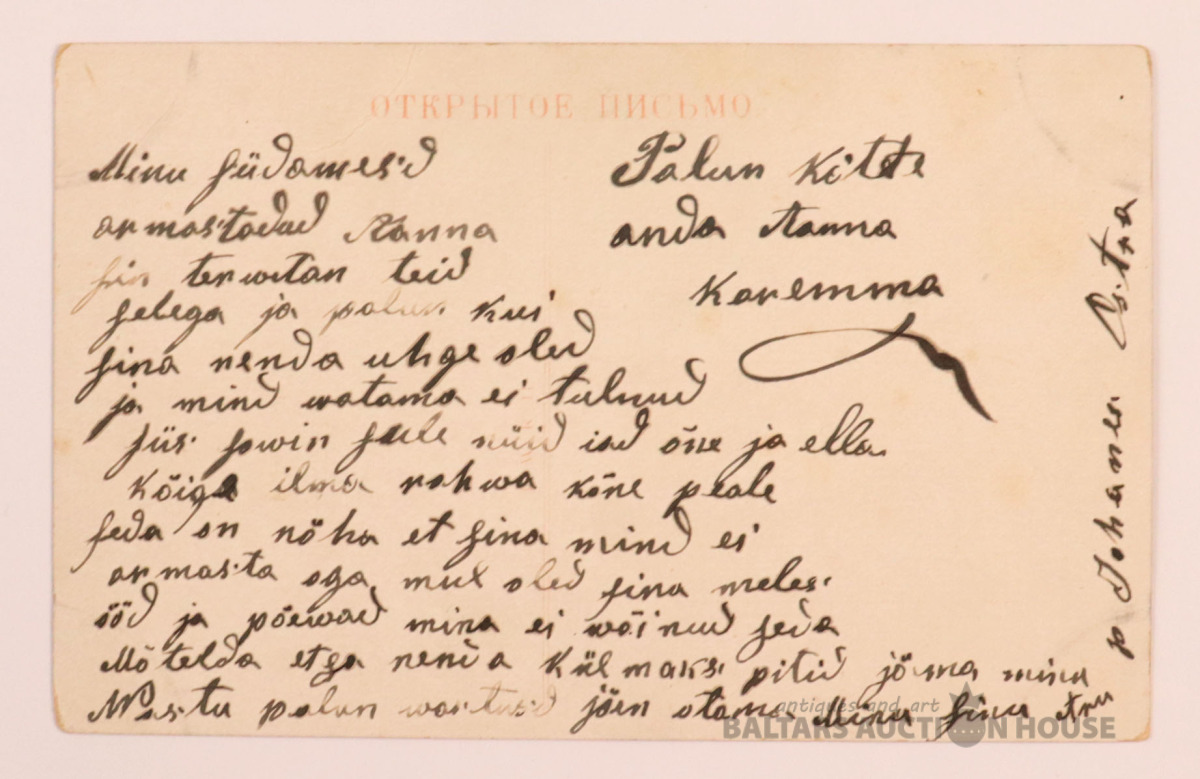 ОТКРЫТОЕ ПИСЬМО
Minu südamesid
armastadud Nanna
siin terwitan teid
selega ja palun kui
sina nenda uhge oled
ja mind watama ei tulnud
siis sowin sule nüid ead õne ja ella
kõige ilma rahwa kõne peale
seda on nöha et sina mind ei
armasta aga mul oled sina meles
ööd ja pöewad mina ei wöinud seda
Mötelda et sa nenda külmaks pitid jöma minu
Wastu palun wastust jöin otama Minu sinu
Palun kitte
anda Nanna
Karemma
p Johannes Astra
antiques and art
BALTARS AUCTION HOUSE